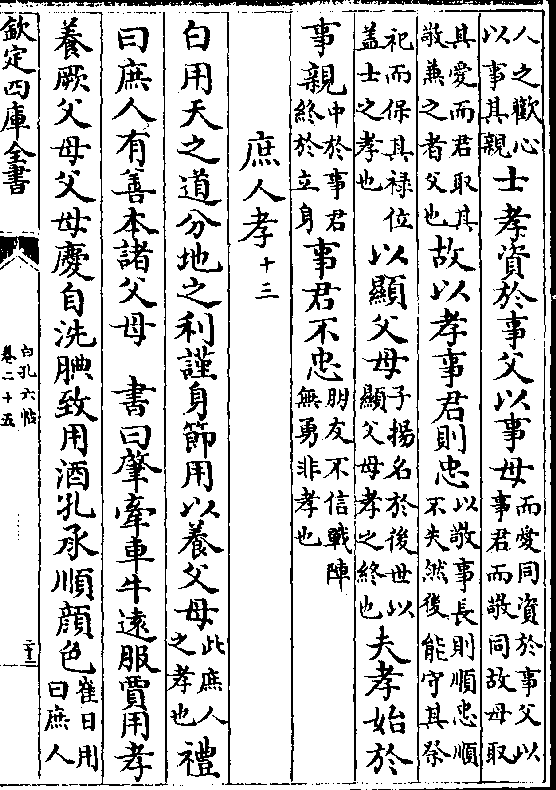 人之歡心以事其親士孝資於事父以事母而愛同資於事父以事君而敬同故母取
其愛而君取其敬兼之者父也故以孝事君則忠以敬事長則順忠順不失然後能守其祭
祀而保其禄位盖士之孝也以顯父母子揚名於後世以顯父母孝之終也夫孝始於
事親中於事君終於立身事君不忠朋友不信戰陣無勇非孝也
庶人孝十三
白用天之道分地之利謹身節用以養父母此庶人之孝也禮
曰庶人有善本諸父母 書曰肇牽車牛逺服賈用孝
養厥父母父母慶自洗腆致用酒孔承順顔色崔日用曰庶人
欽定四庫全書
白孔六帖
卷二十五